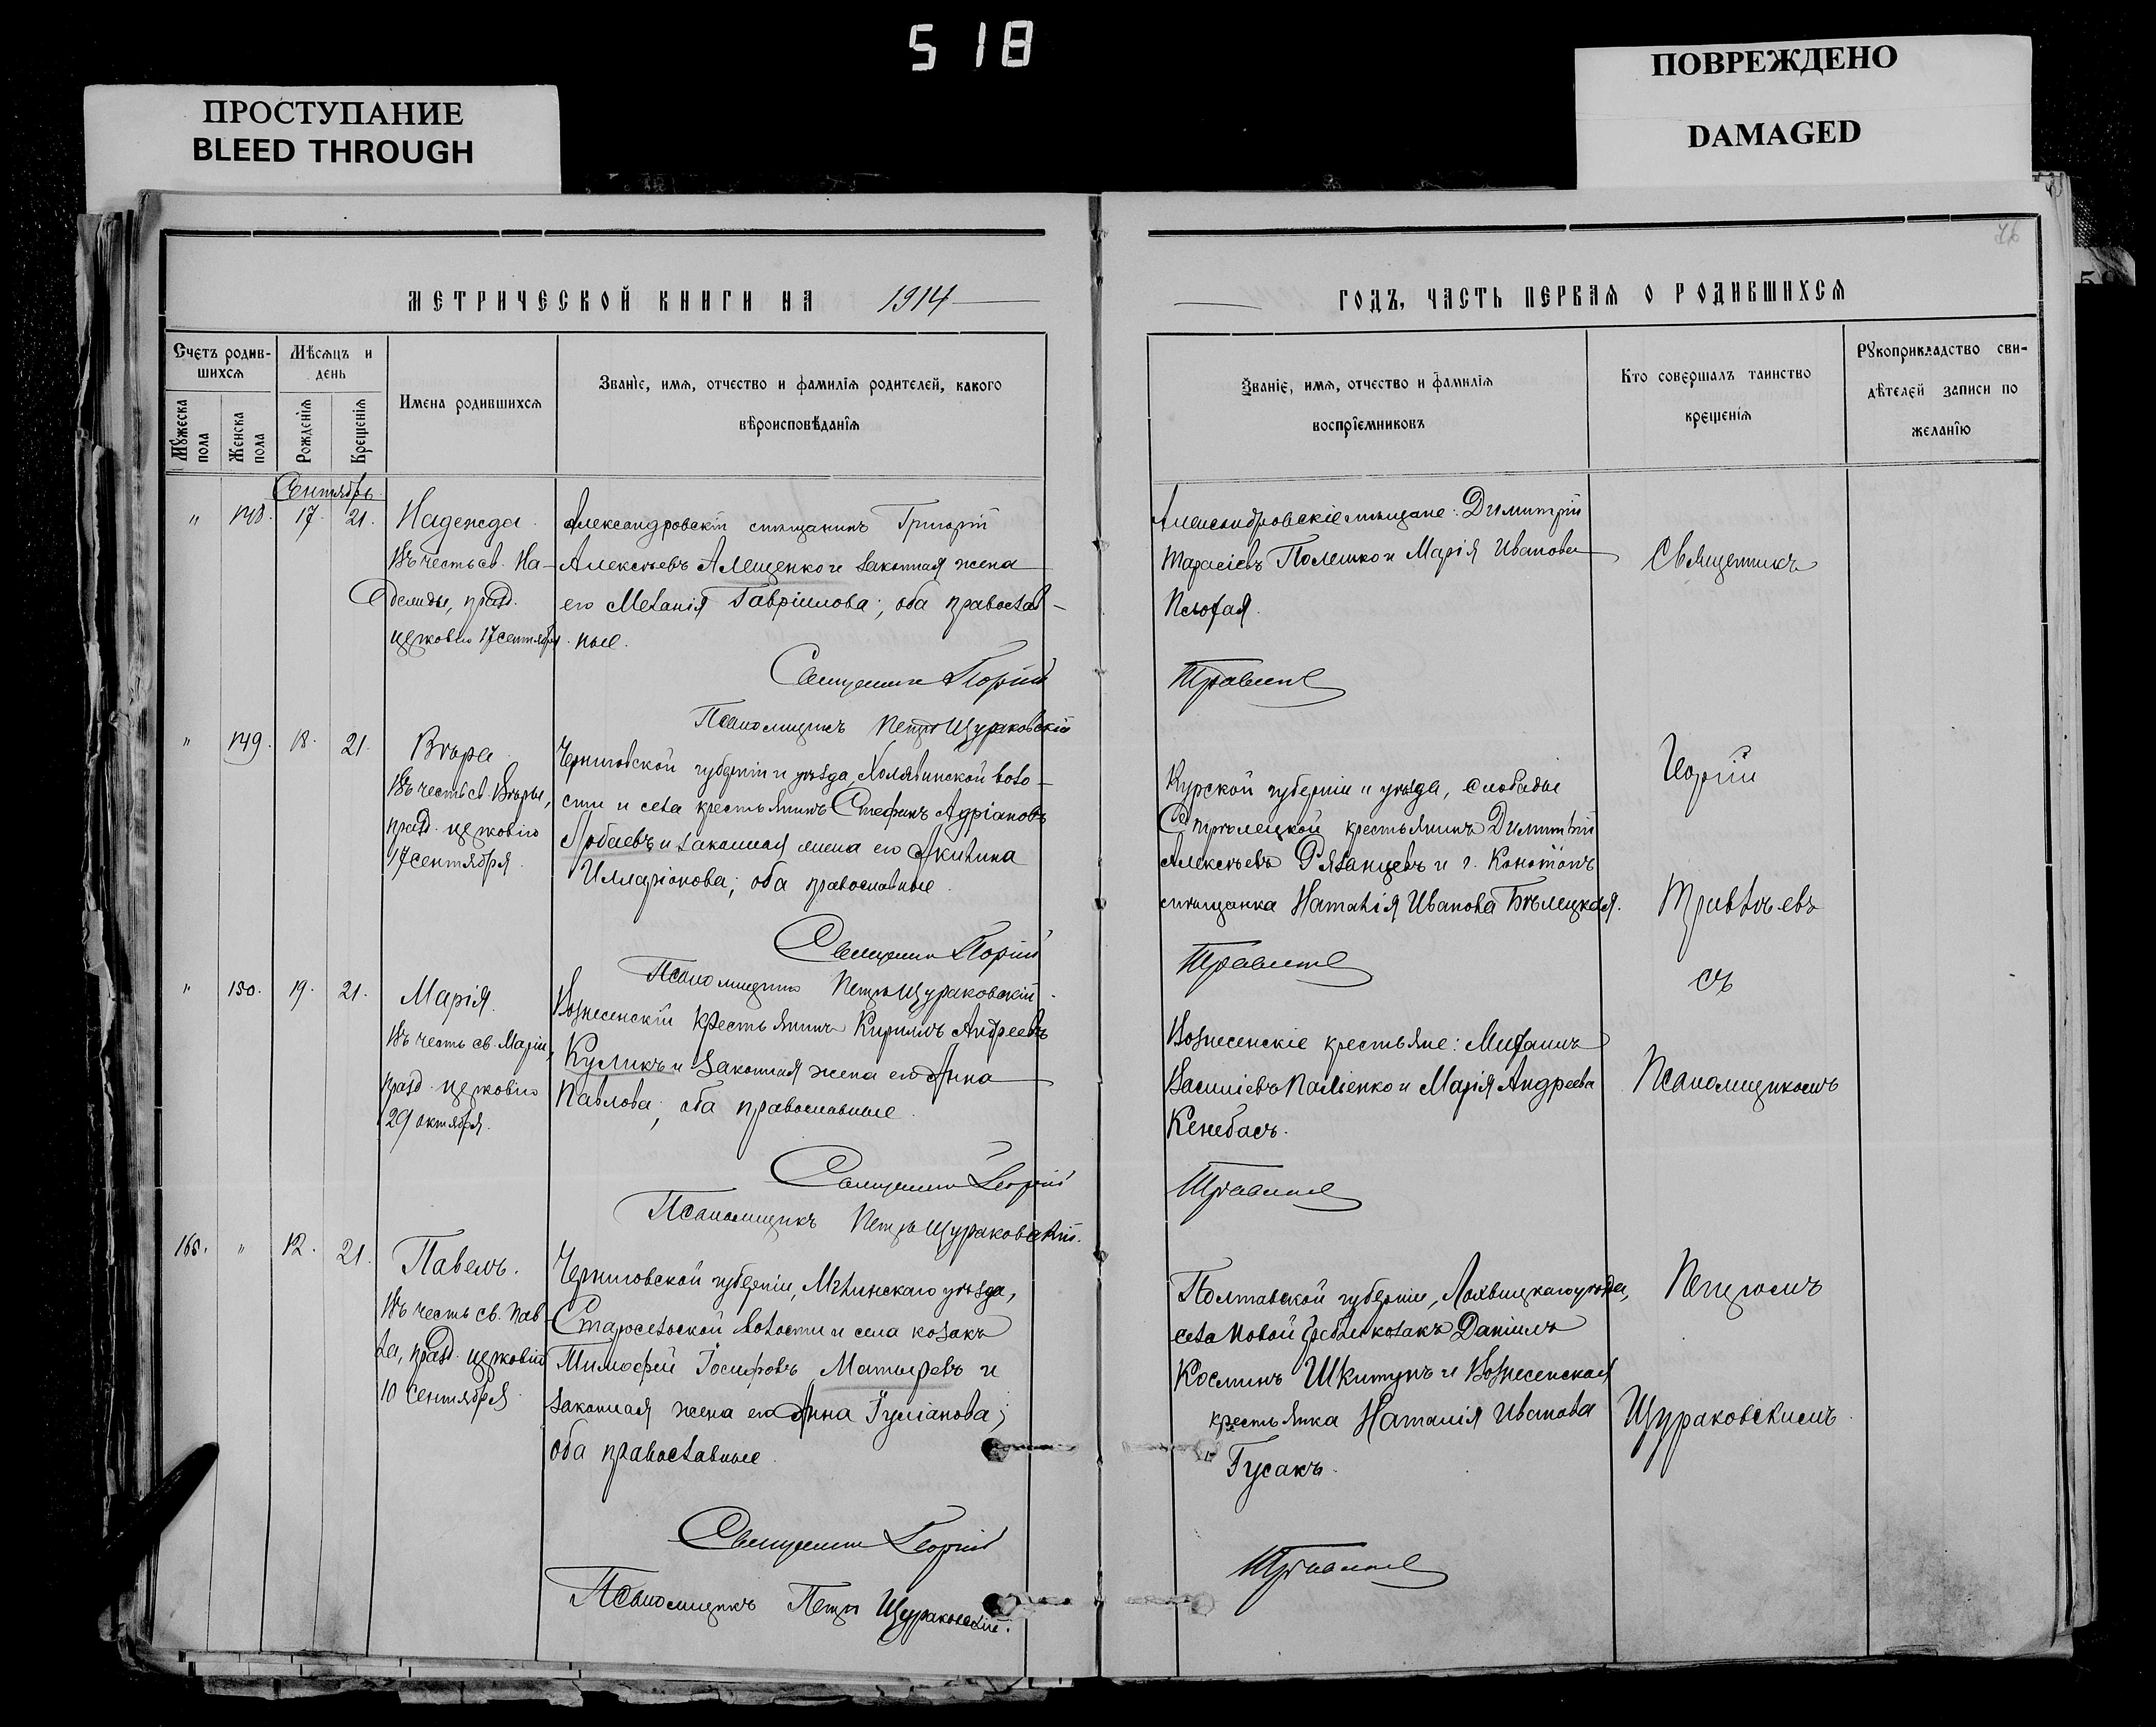 518
ПРОСТУПАНИЕ
BLEED THROUGH
ПОВРЕЖДЕНО
DAMAGED
76
МЕТРИЧЕСКОЙ КНИГИ НА 1914
ГОДЪ, ЧАСТЬ ПЕРВАЯ О РОДИВШИХСЯ
Счетъ родив-
шихся
Мужеска пола
Женска пола
Мѣсяцъ и
день
Рожденія
Крещенія
Имена родившихся
Званіе, имя, отчество и фамилія родителей, какого
вѣроисповѣданія
Званіе, имя, отчество и фамилія
воспріемниковъ
Кто совершалъ таинство
крещенія
Рукоприкладство сви-
дѣтелей записи по
желанію
Сентябрь
" 148. 17. 21. Надежда.
Въ честь св. На-
дежды, празд.
церковію 17 сентября.
Александровскій мѣщанинъ Григорій
Алексѣевъ Алещенко и законная жена
его Меланія Гавріилова; оба православ-
ные.
Священникъ Георгій
Псаломщикъ Петръ Щураковскій
Александровскіе мѣщане: Димитрій
Тарасіевъ Полешко и Марія Иванова
Священникъ
" 149. 18. 21. Вѣра
Въ честь св. Вѣры,
празд. церковію
17 сентября.
Черниговской губерніи и уѣзда, Холявинской воло-
сти и села крестьянинъ Стефанъ Адріановъ
и законная жена его Акилина
Илларіонова; оба православные.
Священникъ Георгій
Псаломщикъ Петръ Щураковскій
Курской губерніи и уѣзда, слободы
Стрѣлецкой крестьянинъ Димитрій
Алексѣевъ Рязанцевъ и г. Конотопъ
мѣщанка Наталія Иванова Бѣлецкая.
Георгій
съ
" 150. 19. 21. Марія.
Въ честь св. Маріи,
празд. церковію
29 октября.
Вознесенскій крестьянинъ Кириллъ Андреевъ
Куликъ и законная жена его Анна
Павлова; оба православные.
Священникъ Георгій
Псаломщикъ Петръ Щураковскій.
Вознесенскіе крестьяне:
Василіевъ Паліенко и Марія Андреева
Кенебасъ.
Псаломщикомъ
165. " 12. 21. Павелъ.
Въ честь св. Пав-
ла, празд. церковію
10 сентября.
Черниговской губерніи, Мглинскаго уѣзда,
Старосельской волости и села козакъ
Тимофей Іосифовъ Матыревъ и
законная жена его Анна Іуліанова;
оба православные.
Священникъ Георгій
Псаломщикъ Петръ Щураковскій.
Полтавской губерніи, Лохвицкаго уѣзда,
села Новой Гребли козакъ Даніилъ
Косминъ Шкитунъ и Вознесенская
крестьянка Наталія Иванова
Гусакъ.
Петромъ
Щураковскимъ.